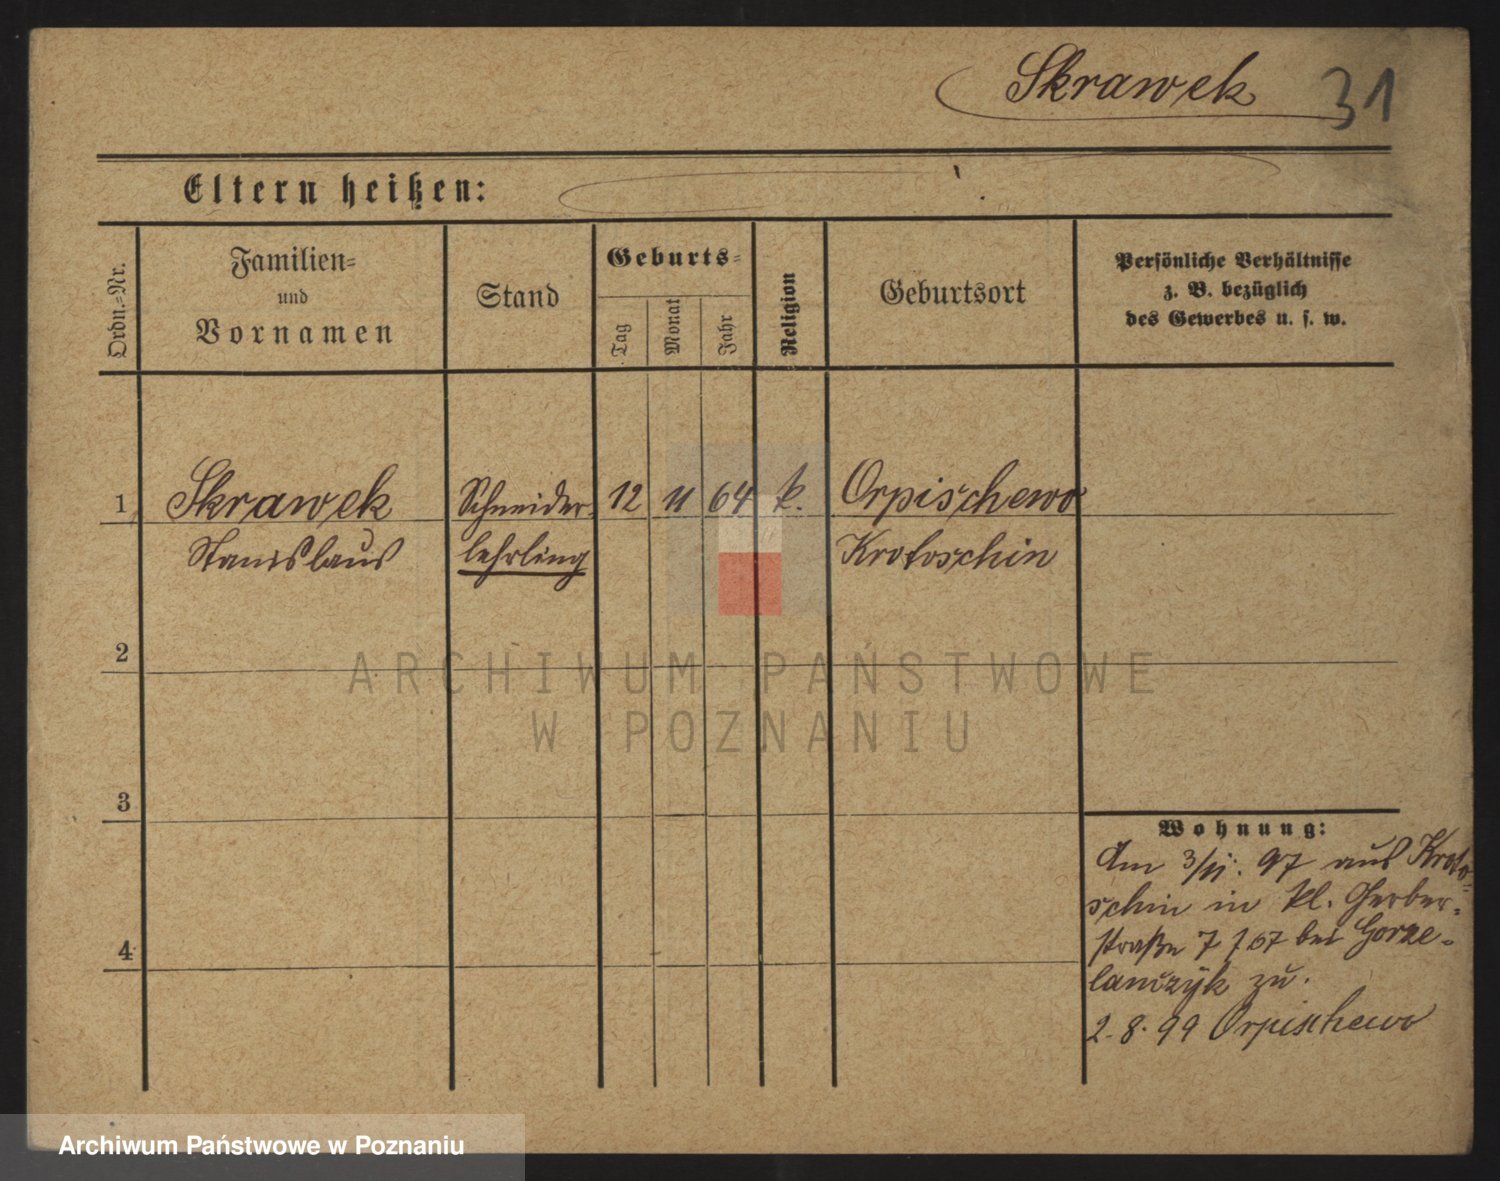 Skrawek 31
Eltern heißen:
Ordn.=Nr.
Familien=
und
Vornamen
Stand
Geburts=
Tag
Monat
Jahr
Religion
Geburtsort
Persönliche Verhältnisse
z. B. bezüglich
des Gewerbes u. s. w.
1 Skrawek Schneider- 12 11 64 k. Orpischewo
Stanislaus lehrling Krotoschin
2
3
4
Wohnung:
Am 3/11. 97 aus Kroto-
schin in kl. Gerber-
straße 7 bei Gorze-
lanczyk zu.
2.8.99 Orpischewo
ARCHIWUM PAŃSTWOWE
W POZNANIU
Archiwum Państwowe w Poznaniu